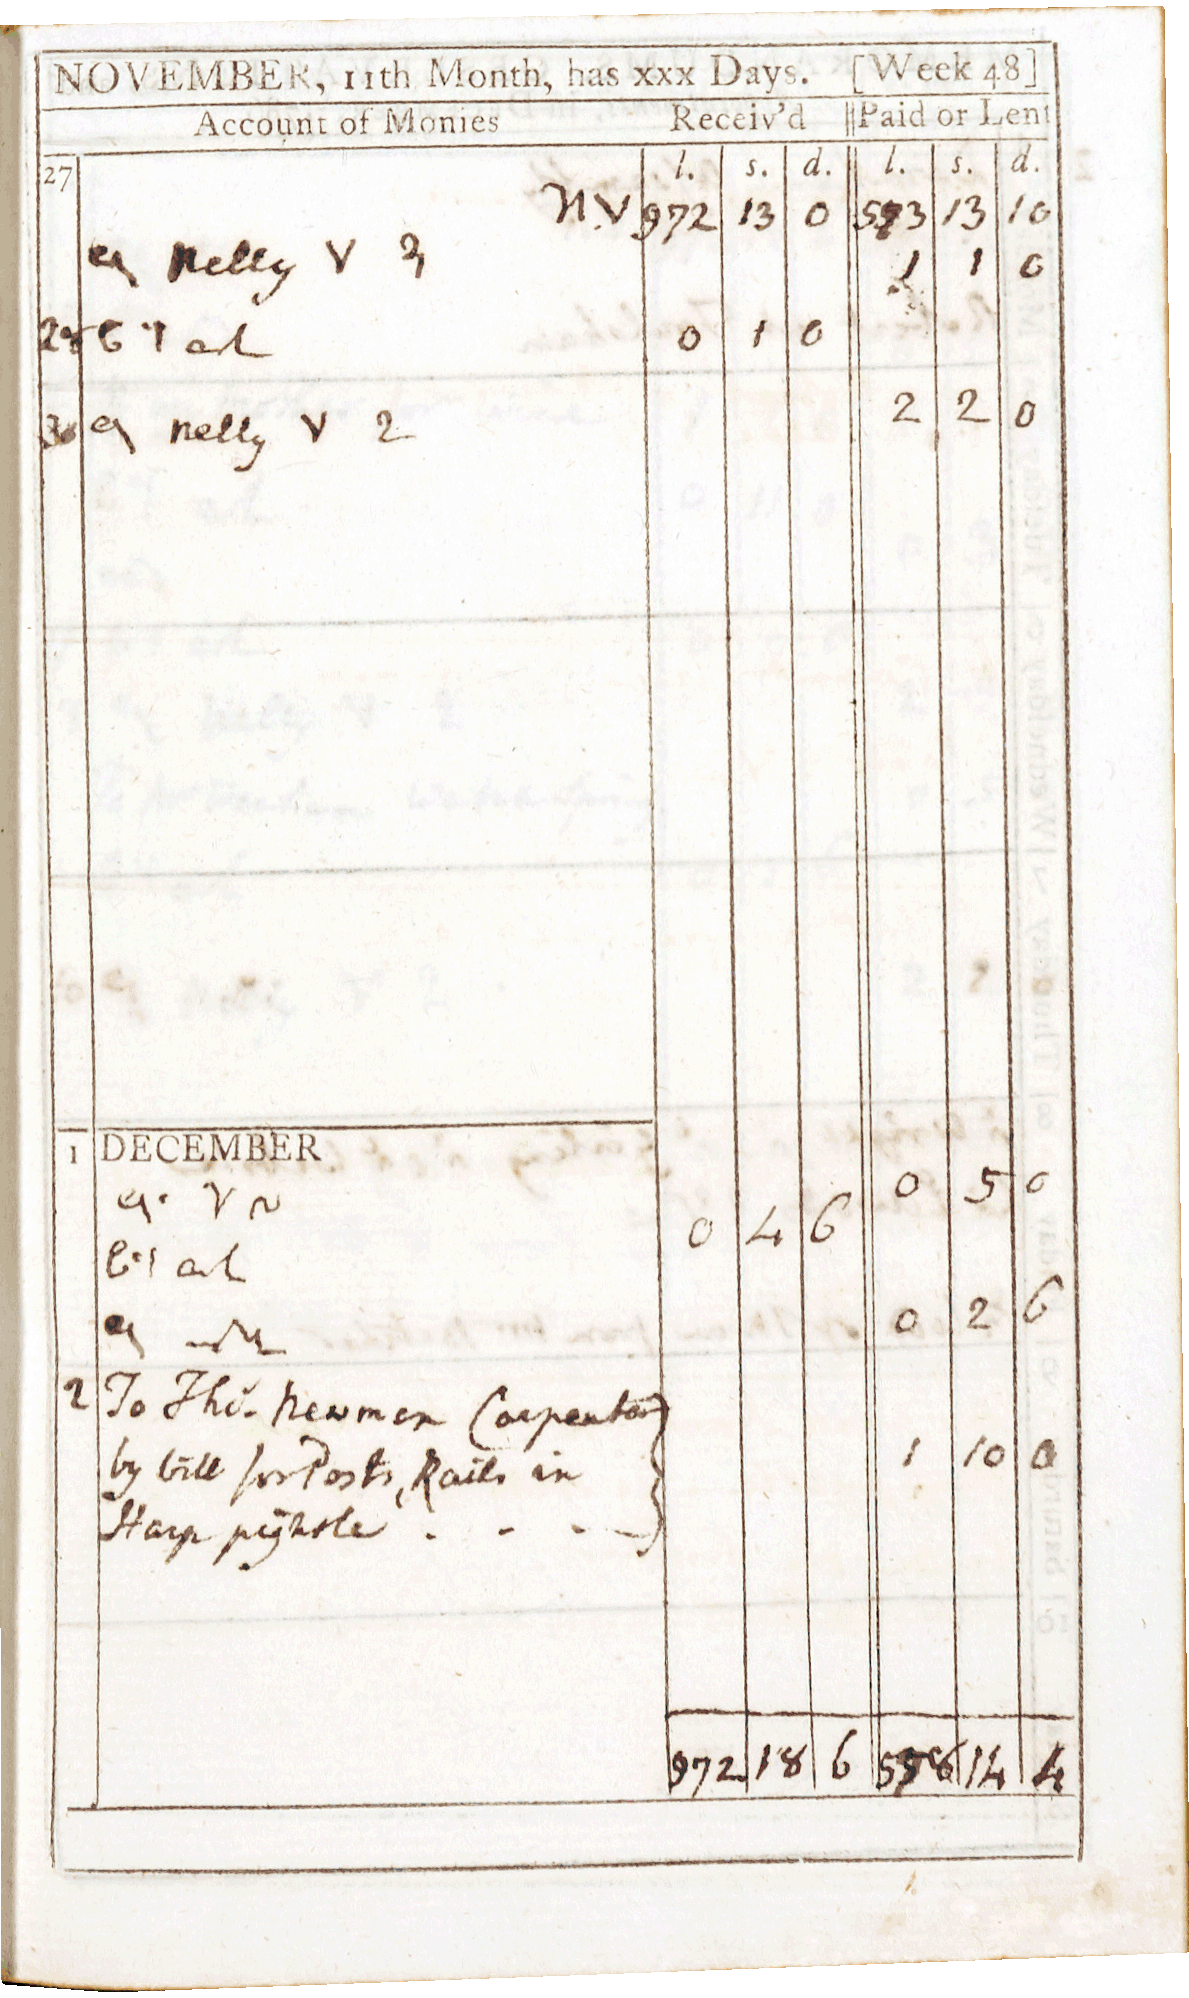 NOVEMBER, 11th Month, has xxx Days. [Week 48]
Account of Monies Receiv'd Paid or Lent
27 l. s. d. l. s. d.
N.V 972 13 0 593 13 10
Nelly V 1 1 0
28 0 1 0
30 Nelly V 2 2 2 0
1 DECEMBER
0 5 0
0 4 6
0 2 6
2 To Tho.s Newman Carpenter
by bill for Posts, Rails in 1 10 0
Harp pightle . - - -
972 18 6 598 14 4